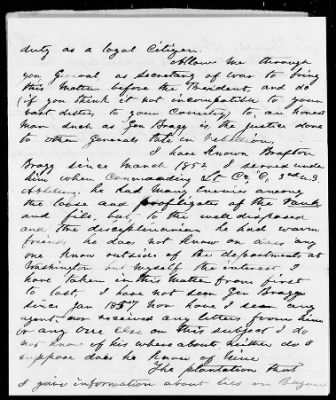 duty as a loyal Citizen.
Allow me through
you General as secretary of war to bring
this Matter before the President, and do
(if you think it not incompatible to your
vast duties to your Country) to an honest
man such as Gen Bragg is, the justice done
to other Generals late in rebellion.
I have Known Braxton
Bragg since March 1852 I served under
him when Commanding Lt Co "C" 3rd U.S.
Artillery. he had many enemies among
the loose and profligates of the rank
and file, but, to the well disposed
and the disciplinarian he had warm
friends he does not know or does any
one Know outside of the departments at
Washington but Myself the interest I
have taken in this matter from first
to last, I have not seen Gen Bragg
since Jan Nor have I seen any
agent nor received any letters from him
or any one else on this subject I do
not know of his where abouts, neither do I
suppose does he Know of Mine
The plantation that
I gave information about lies on Bayou